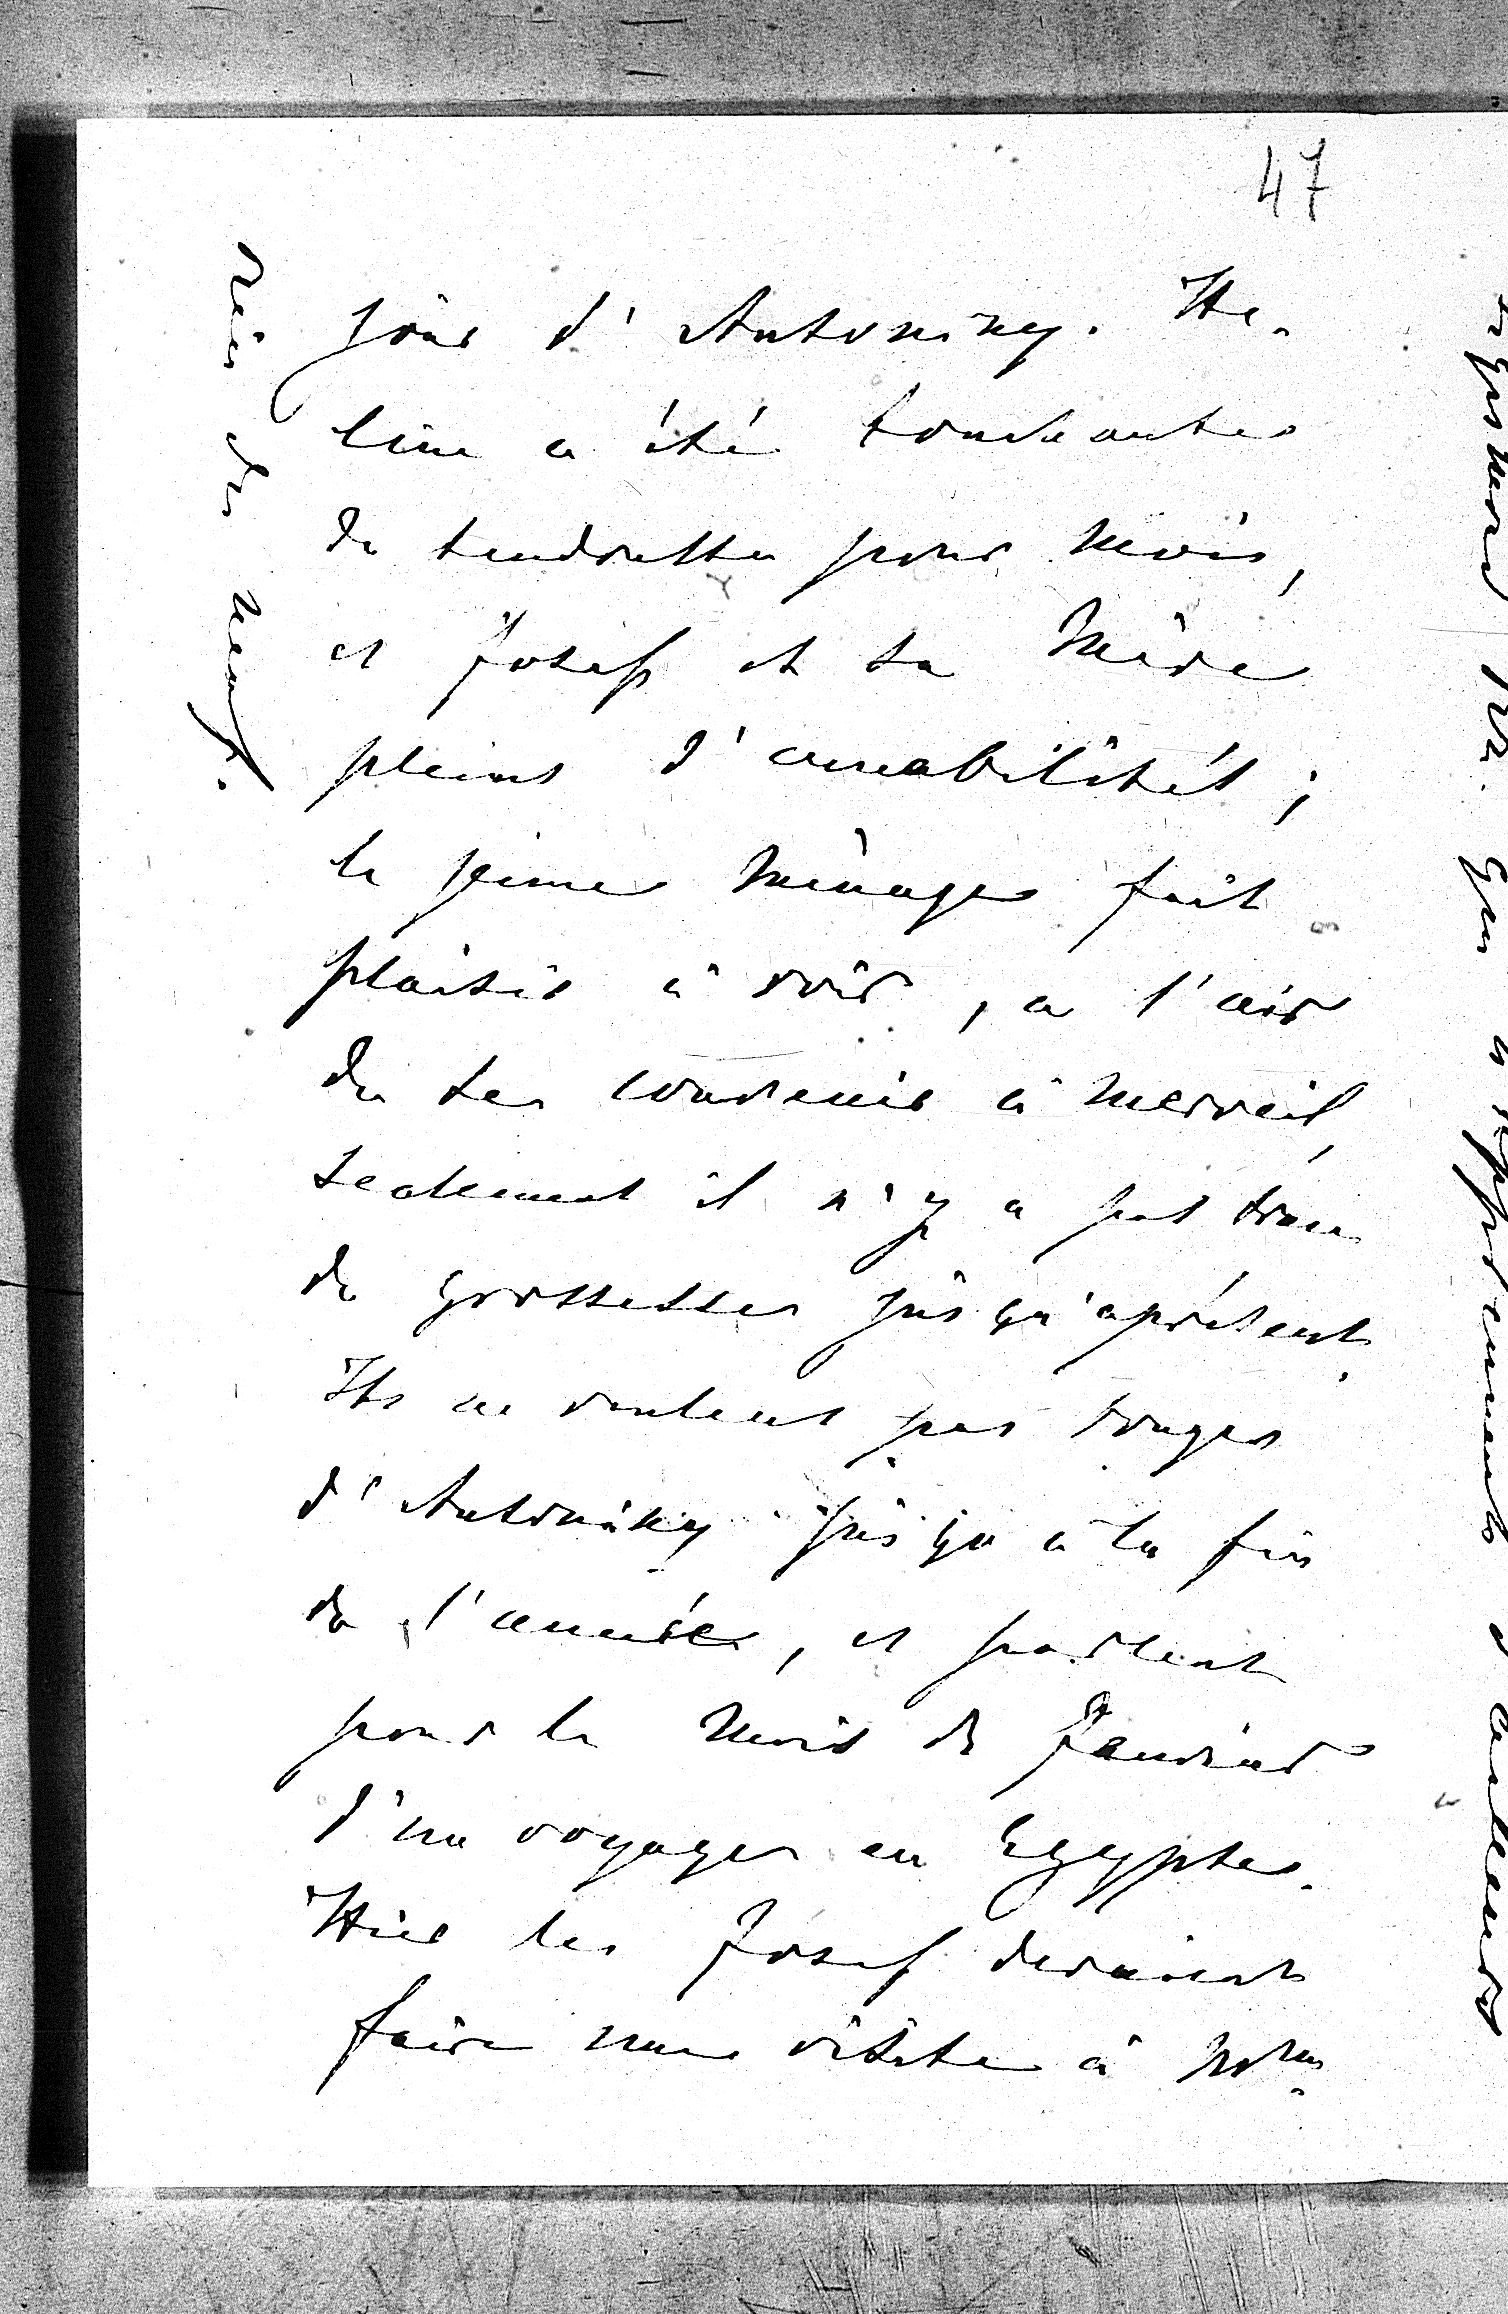 47
jour d'Antoniny. He-
line a été touchante
de tendresse pour moi,
et Josef et sa Mère
pleins d'amabilités ;
le jeune ménage fait
plaisir à voir, a l'air
de se convenir à merveil,
seulement il n'y a pas trace
de grossesse jusqu'aprésent.
Ils ne veulent pas bouger
d'Antoniny jusqu'à la fin
de l'année, et parlent
pour le mois de Janvier
d'un voyage en Egypte.
Hier les Josef devaient
faire une visite à notre
rien de neuf.